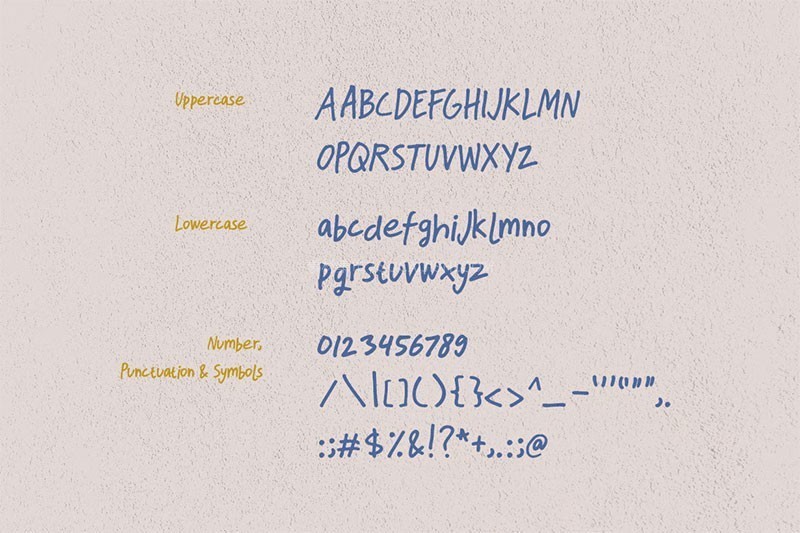 Uppercase
AABCDEFGHIJKLMN
OPQRSTUVWXYZ
Lowercase
abcdefghijklmno
pgrstuvwxyz
Number,
Punctuation & Symbols
0123456789
/\|[](){}<>^_-‘’′“”"",.
:;#$%&!?*+,.:;@